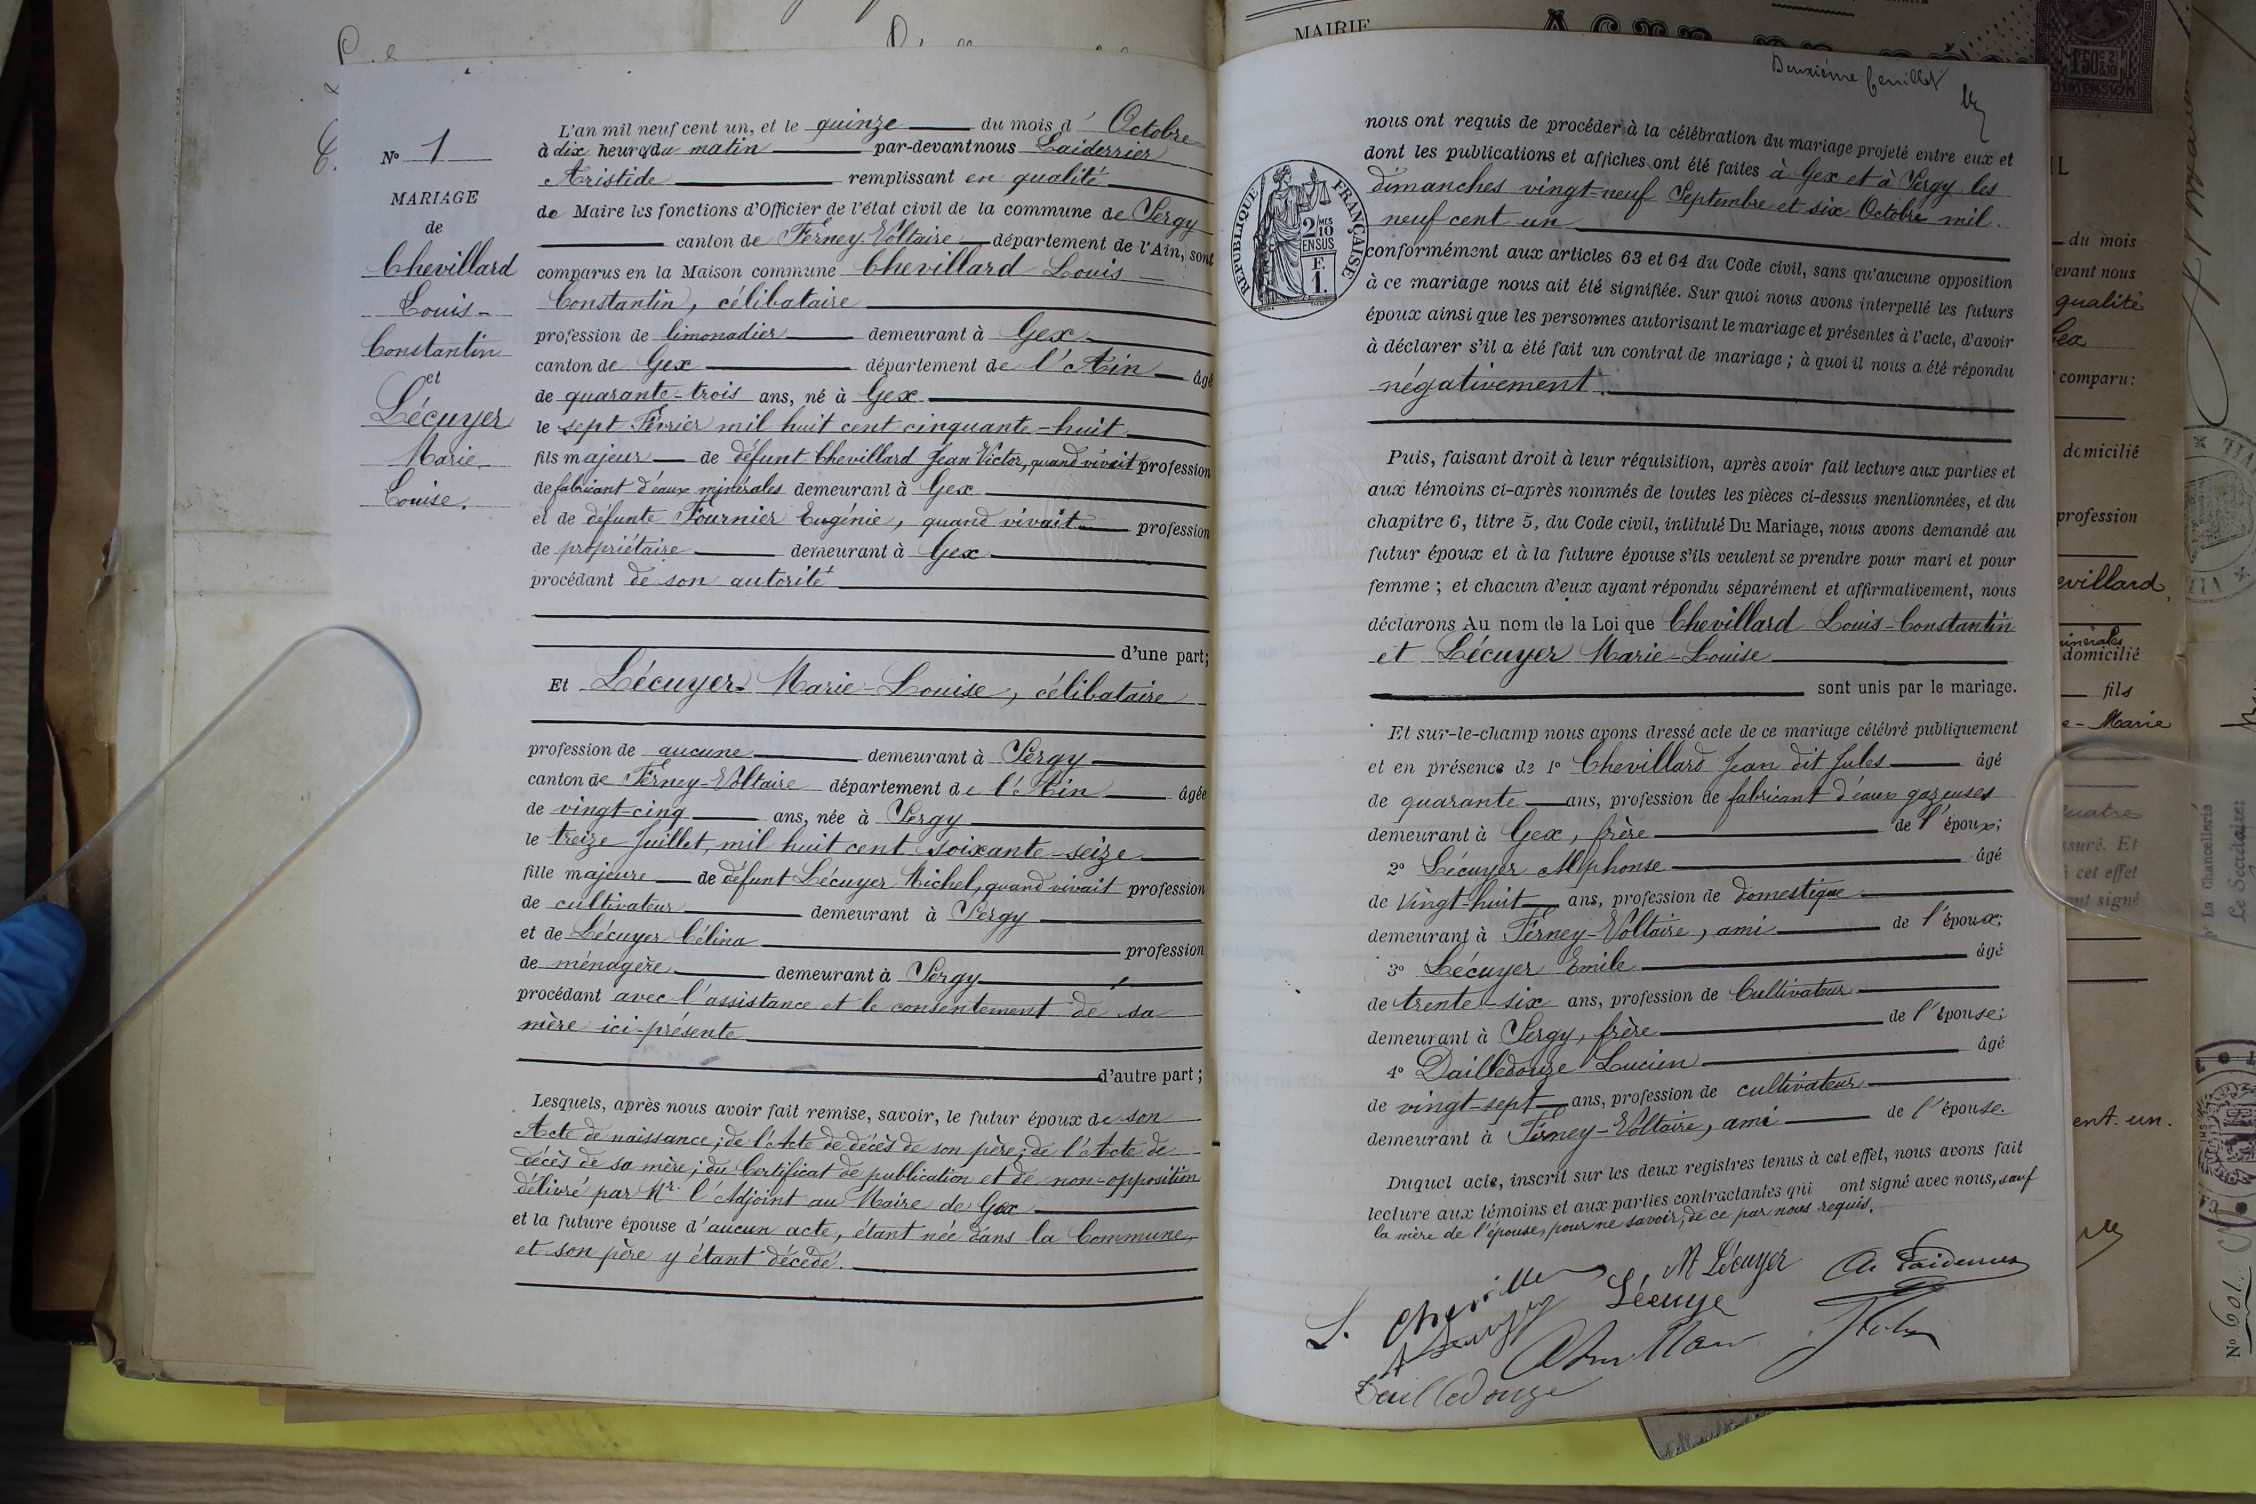 N° 1
MARIAGE
de
Chevillard
Louis-
Constantin
et
Lécuyer
Marie-
Louise.
L'an mil neuf cent un, et le quinze du mois d' Octobre
à dix heures du matin par-devant nous Laiderrier
Aristide remplissant en qualité
de Maire les fonctions d'Officier de l'état civil de la commune de Sergy
canton de Ferney-Voltaire département de l'Ain, sont
comparus en la Maison commune Chevillard Louis-
Constantin, célibataire
profession de limonadier demeurant à Gex
canton de Gex département de l'Ain âgé
de quarante-trois ans, né à Gex
le sept Février mil huit cent cinquante-huit
fils majeur de défunt Chevillard Jean Victor, quand vivait profession
de fabricant d'eaux minérales demeurant à Gex
et de défunte Fournier Eugénie, quand vivait profession
de propriétaire demeurant à Gex
procédant de son autorité
d'une part;
Et Lécuyer Marie-Louise, célibataire
profession de aucune demeurant à Sergy
canton de Ferney-Voltaire département de l'Ain âgée
de vingt-cinq ans, née à Sergy
le treize Juillet, mil huit cent soixante-seize
fille majeure de défunt Lécuyer Michel, quand vivait profession
de cultivateur demeurant à Sergy
et de Lécuyer Célina profession
de ménagère demeurant à Sergy
procédant avec l'assistance et le consentement de sa
mère ici-présente
d'autre part;
Lesquels, après nous avoir fait remise, savoir, le futur époux de son
Acte de naissance; de l'Acte de décès de son père; de l'Acte de
décès de sa mère; du Certificat de publication et de non-opposition
délivré par Mr. l'Adjoint au Maire de Gex
et la future épouse d'aucun acte, étant née dans la Commune,
et son père y étant décédé.
Deuxième feuillet
RÉPUBLIQUE FRANÇAISE
2 MES
10
EN SUS
F.
1.
nous ont requis de procéder à la célébration du mariage projeté entre eux et
dont les publications et affiches ont été faites à Gex et à Sergy les
dimanches vingt-neuf Septembre et six Octobre mil
neuf cent un
conformément aux articles 63 et 64 du Code civil, sans qu'aucune opposition
à ce mariage nous ait été signifiée. Sur quoi nous avons interpellé les futurs
époux ainsi que les personnes autorisant le mariage et présentes à l'acte, d'avoir
à déclarer s'il a été fait un contrat de mariage; à quoi il nous a été répondu
négativement.
Puis, faisant droit à leur réquisition, après avoir fait lecture aux parties et
aux témoins ci-après nommés de toutes les pièces ci-dessus mentionnées, et du
chapitre 6, titre 5, du Code civil, intitulé Du Mariage, nous avons demandé au
futur époux et à la future épouse s'ils veulent se prendre pour mari et pour
femme; et chacun d'eux ayant répondu séparément et affirmativement, nous
déclarons Au nom de la Loi que Chevillard Louis-Constantin
et Lécuyer Marie-Louise
sont unis par le mariage.
Et sur-le-champ nous avons dressé acte de ce mariage célébré publiquement
et en présence de 1° Chevillard Jean dit Jules âgé
de quarante ans, profession de fabricant d'eaux gazeuses
demeurant à Gex, frère de l'époux;
2° Lécuyer Alphonse âgé
de vingt-huit ans, profession de domestique
demeurant à Ferney-Voltaire, ami de l'époux;
3° Lécuyer Emile âgé
de trente-six ans, profession de Cultivateur
demeurant à Sergy, frère de l'épouse;
4° Dailledouze Lucien âgé
de vingt-sept ans, profession de cultivateur
demeurant à Ferney-Voltaire, ami de l'épouse.
Duquel acte, inscrit sur les deux registres tenus à cet effet, nous avons fait
lecture aux témoins et aux parties contractantes qui ont signé avec nous, sauf
la mère de l'épouse, pour ne savoir, de ce par nous requis.
M Lécuyer
L.
Lécuye
Dailledouze
MAIRIE
du mois
evant nous
qualité
Gex
comparu:
domicilié
profession
evillard,
minérales
domicilié
fils
e-Marie
quatre
ssuré. Et
à cet effet
ont signé
ent un.
Pr La Chancellerie
Le Secrétaire:
N° 601